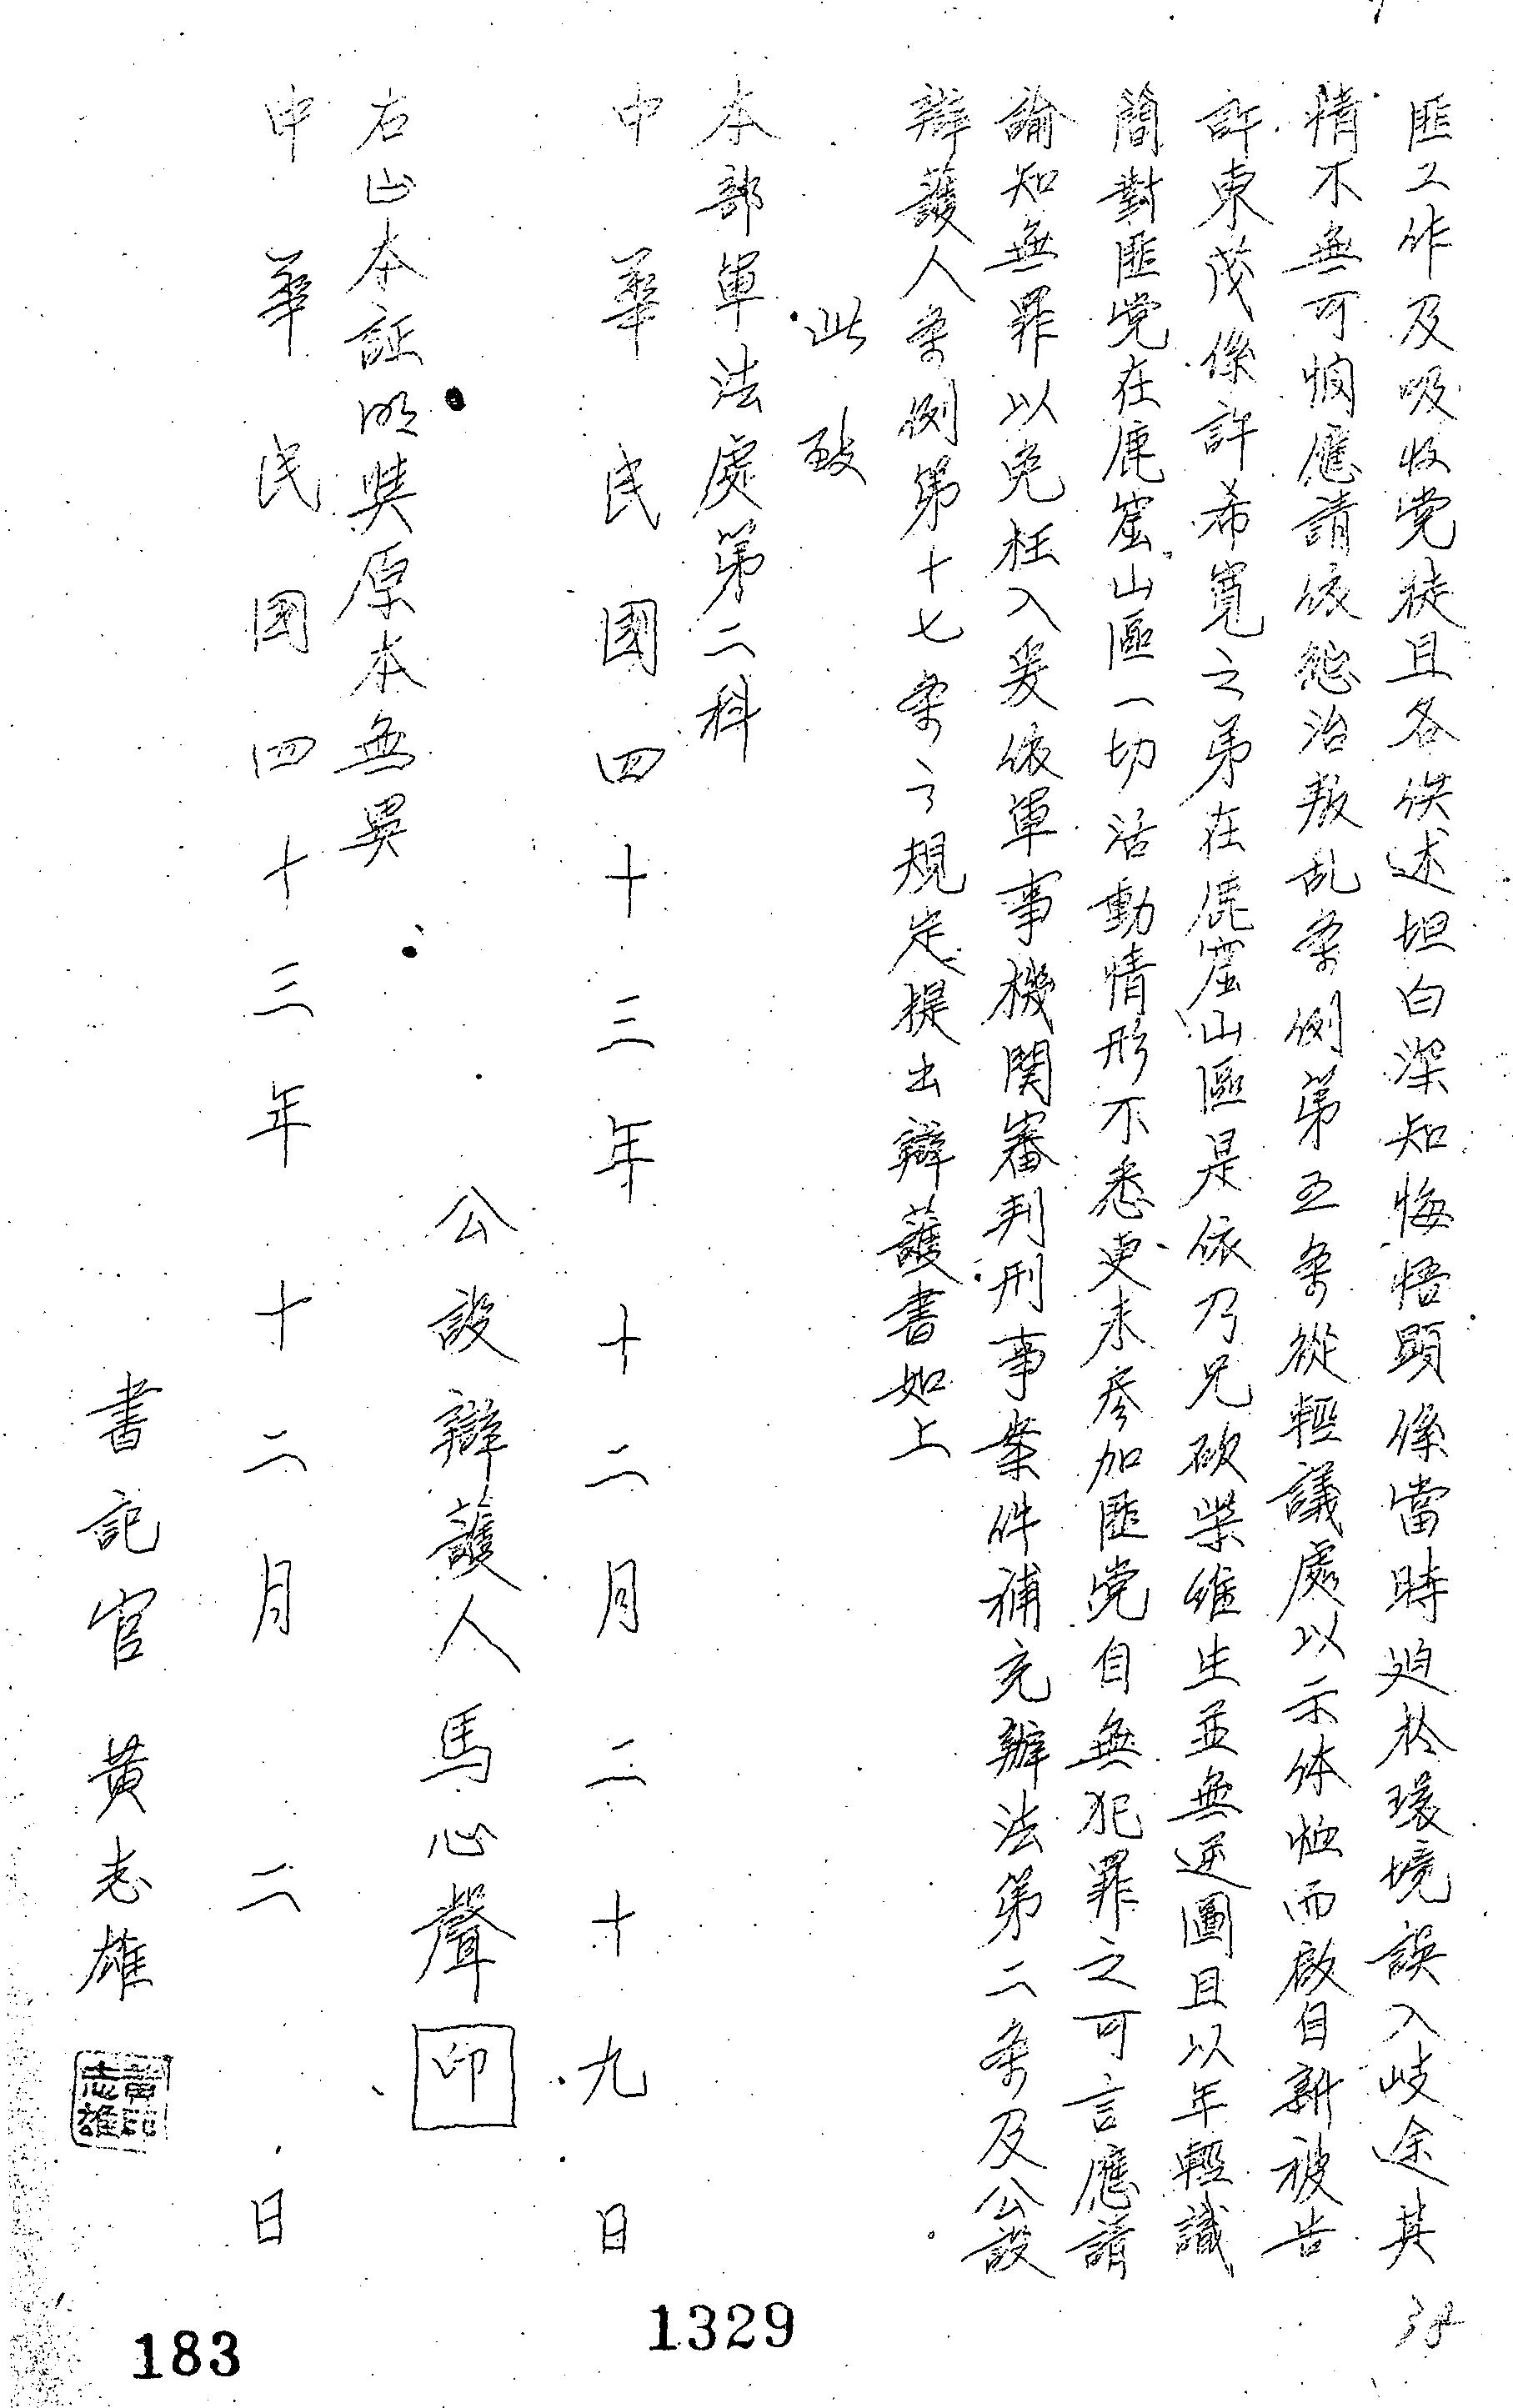 匪工作及吸收党徒且各供述坦白深知悔悟顕係當時迫於環境誤入岐途其
情不無可憫應請依懲治叛乱条例第五条從輕議處以示体恤而啟自新被告
許東茂係許希寬之弟在鹿窟山區是依乃兄砍柴維生並無逆圖且以年輕識
簡對匪党在鹿窟山區一切活動情形不悉更未參加匪党自無犯罪之可言應請
諭知無罪以免枉入爰依軍事機関審判刑事案件補充辦法第二条及公設
辯護人条例第十七条之規定提出辯護書如上
此致
本部軍法處第二科
中華民國四十三年十二月二十九日
公設辯護人馬心聲印
右正本証明與原本無異
中華民国四十三年十二月二日
書記官黃志雄
黃志雄印
1329
183